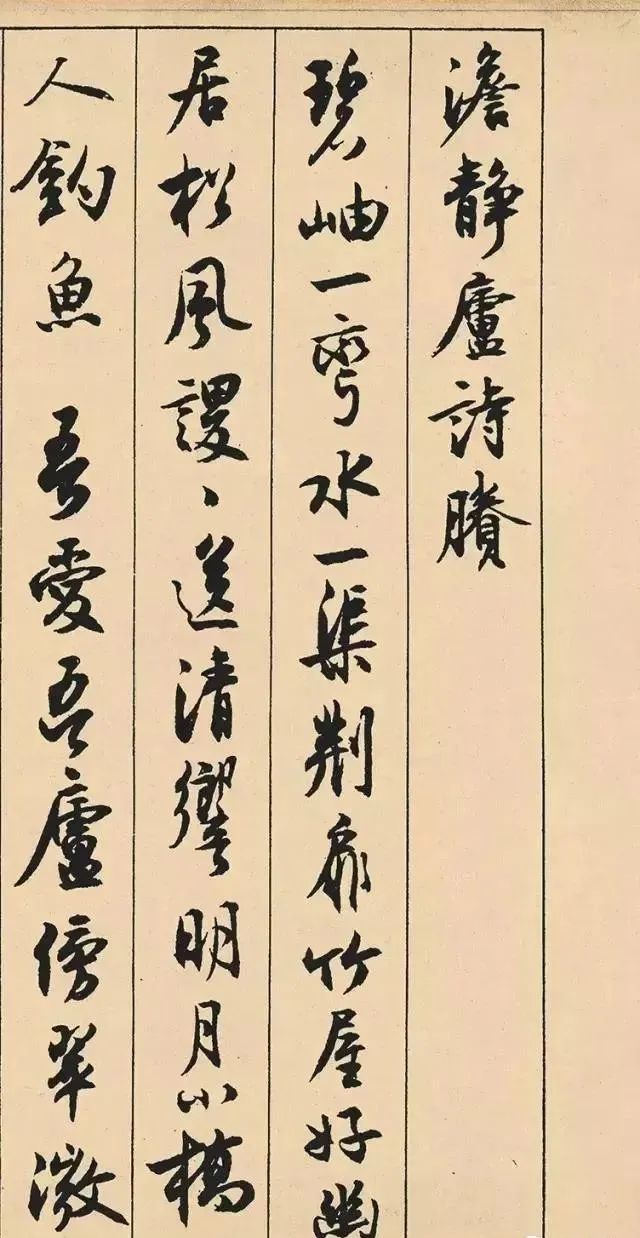 澹静廬詩賸
碧岫一弯水一渠荆扉竹屋好幽
居松風謖〻送清響明月小橋
人釣魚 吾愛吾廬傍翠微